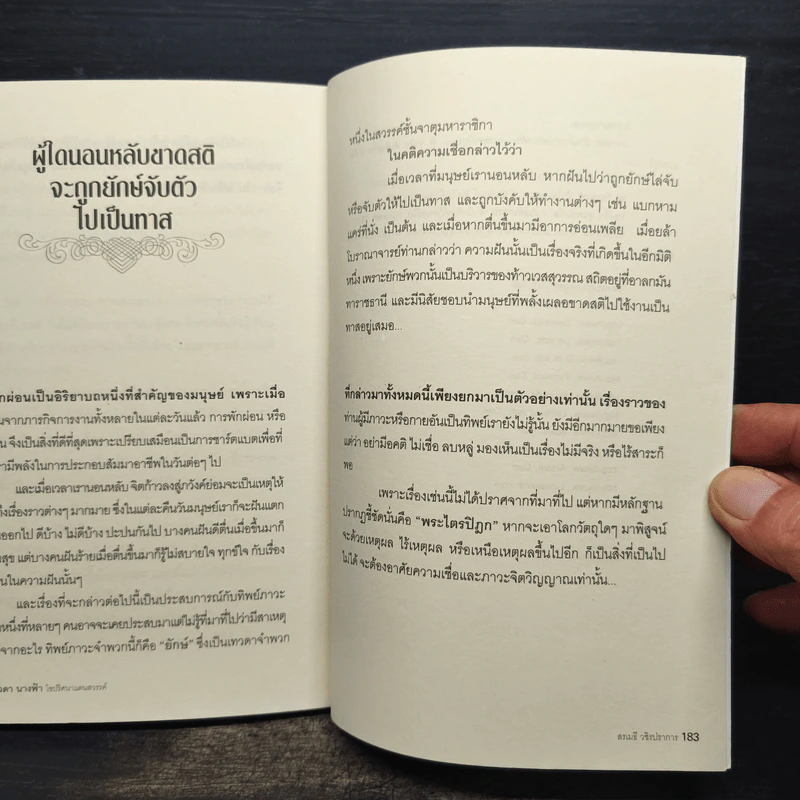 ผู้ใดนอนหลับขาดสติ
จะถูกยักษ์จับตัว
ไปเป็นทาส
กผ่อนเป็นอิริยาบถหนึ่งที่สำคัญของมนุษย์ เพราะเมื่อ
นจากภารกิจการงานทั้งหลายในแต่ละวันแล้ว การพักผ่อน หรือ
น จึงเป็นสิ่งที่ดีที่สุดเพราะเปรียบเสมือนเป็นการชาร์ตแบตเพื่อที่
รามีพลังในการประกอบสัมมาอาชีพในวันต่อๆ ไป
และเมื่อเวลาเรานอนหลับ จิตก้าวลงสู่ภวังค์ย่อมจะเป็นเหตุให้
ถึงเรื่องราวต่างๆ มากมาย ซึ่งในแต่ละคืนวันมนุษย์เราก็จะฝันแตก
ออกไป ดีบ้าง ไม่ดีบ้าง ปะปนกันไป บางคนฝันดีตื่นเมื่อขึ้นมาก็
สุข แต่บางคนฝันร้ายเมื่อตื่นขึ้นมาก็รู้ไม่สบายใจ ทุกข์ใจ กับเรื่อง
นในความฝันนั้นๆ
และเรื่องที่จะกล่าวต่อไปนี้เป็นประสบการณ์กับทิพย์ภาวะ
หนึ่งที่หลายๆ คนอาจจะเคยประสบมาแต่ไม่รู้ที่มาที่ไปว่ามีสาเหตุ
จากอะไร ทิพย์ภาวะจำพวกนี้ก็คือ “ยักษ์” ซึ่งเป็นเทวดาจำพวก
วดา นางฟ้า ไขปริศนาแดนสวรรค์
หนึ่งในสวรรค์ชั้นจาตุมหาราชิกา
ในคติความเชื่อกล่าวไว้ว่า
เมื่อเวลาที่มนุษย์เรานอนหลับ หากฝันไปว่าถูกยักษ์ไล่จับ
หรือจับตัวให้ไปเป็นทาส และถูกบังคับให้ทำงานต่างๆ เช่น แบกหาม
แคร่ที่นั่ง เป็นต้น และเมื่อหากตื่นขึ้นมามีอาการอ่อนเพลีย เมื่อยล้า
โบราณาจารย์ท่านกล่าวว่า ความฝันนั้นเป็นเรื่องจริงที่เกิดขึ้นในอีกมิติ
หนึ่ง เพราะยักษ์พวกนั้นเป็นบริวารของท้าวเวสสุวรรณ สถิตอยู่ที่อาลกมัน
ทาราชธานี และมีนิสัยชอบนำมนุษย์ที่พลั้งเผลอขาดสติไปใช้งานเป็น
ทาสอยู่เสมอ...
ที่กล่าวมาทั้งหมดนี้เพียงยกมาเป็นตัวอย่างเท่านั้น เรื่องราวของ
ท่านผู้มีภาวะหรือกายอันเป็นทิพย์เรายังไม่รู้นั้น ยังมีอีกมากมายขอเพียง
แต่ว่า อย่ามีอคติ ไม่เชื่อ ลบหลู่ มองเห็นเป็นเรื่องไม่มีจริง หรือไร้สาระก็
พอ
เพราะเรื่องเช่นนี้ไม่ได้ปราศจากที่มาที่ไป แต่หากมีหลักฐาน
ปรากฏชี้ชัดนั่นคือ “พระไตรปิฎก” หากจะเอาโลกวัตถุใดๆ มาพิสูจน์
จะด้วยเหตุผล ไร้เหตุผล หรือเหนือเหตุผลขึ้นไปอีก ก็เป็นสิ่งที่เป็นไป
ไม่ได้ จะต้องอาศัยความเชื่อและภาวะจิตวิญญาณเท่านั้น...
สรเมธี วชิรปราการ 183